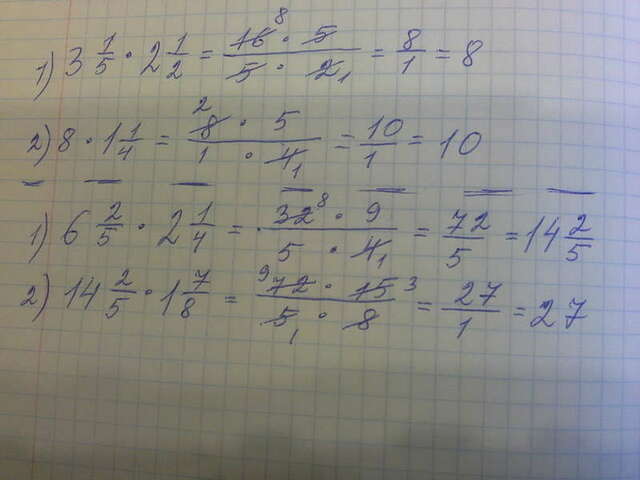 1) 3 1/5 · 2 1/2 = (16 8 · 5)/(5 · 2 1) = 8/1 = 8
2) 8 · 1 1/4 = (8 2 · 5)/(1 · 4 1) = 10/1 = 10
1) 6 2/5 · 2 1/4 = (32 8 · 9)/(5 · 4 1) = 72/5 = 14 2/5
2) 14 2/5 · 1 7/8 = (9 72 · 15 3)/(5 1 · 8) = 27/1 = 27